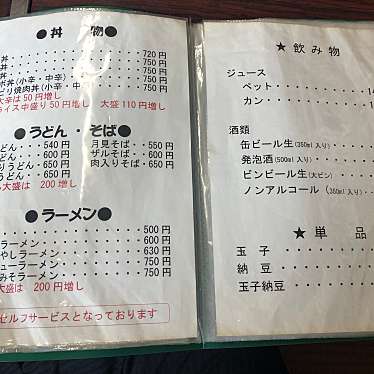 ●丼 物●
丼・・・・・・・・・・・720円
丼・・・・・・・・・・・750円
丼・・・・・・・・・・・750円
丼(小辛・中辛)・・・750円
ピリ焼肉丼(小辛・中辛)・750円
大辛は50円増し
イス中盛り50円増し 大盛110円増し
●うどん・そば●
どん・・・540円 月見そば・・550円
どん・・・600円 ザルそば・・600円
りうどん・650円 肉入りそば・650円
うどん・・650円
大盛は 200増し
●ラーメン●
・・・・・・・・・・・500円
ラーメン・・・・・・・・600円
やしラーメン・・・・・・630円
ューラーメン・・・・・・750円
みそラーメン・・・・・・750円
大盛は 200円増し
セルフサービスとなっております
★飲み物
ジュース
ペット・・・・・・・・・14
カン・・・・・・・・・・1
酒類
缶ビール生(350ml入り)・・・
発泡酒(500ml入り)・・・・・
ビンビール生(大ビン)・・・
ノンアルコール(350ml入り)・
★単品
玉 子・・・・・・・・・・
納 豆・・・・・・・・・・
玉子納豆・・・・・・・・・